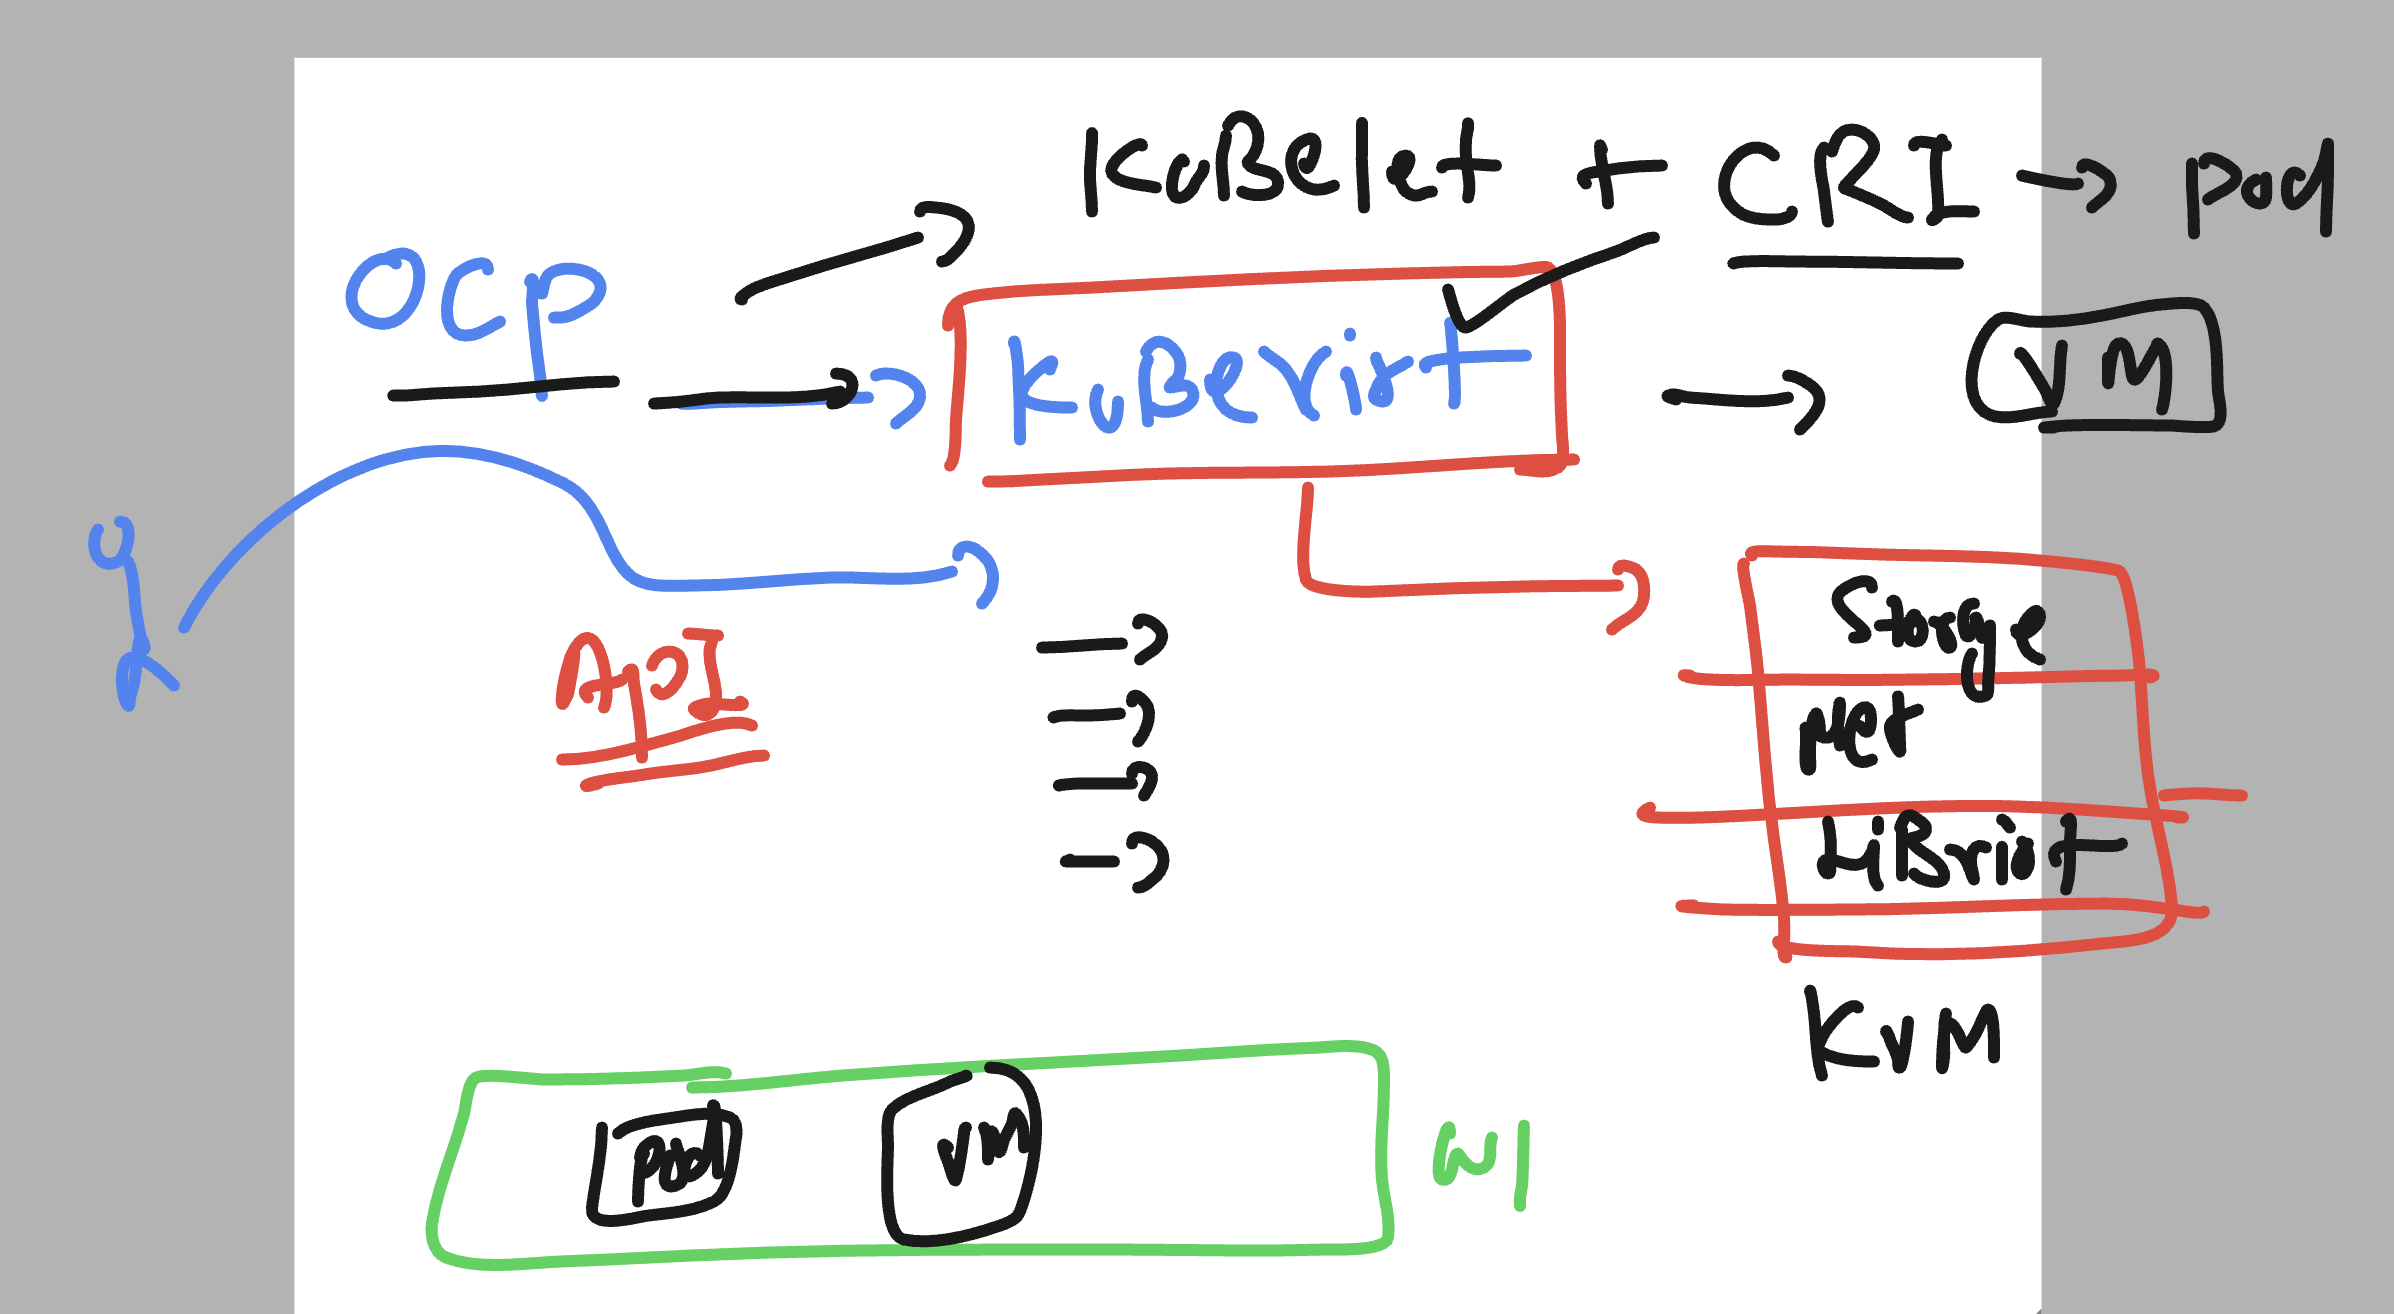 KuBelet + CRI → pod
OCP → KuBevirt → VM
API
Storage
Net
LiBvirt
KVM
pod VM W1